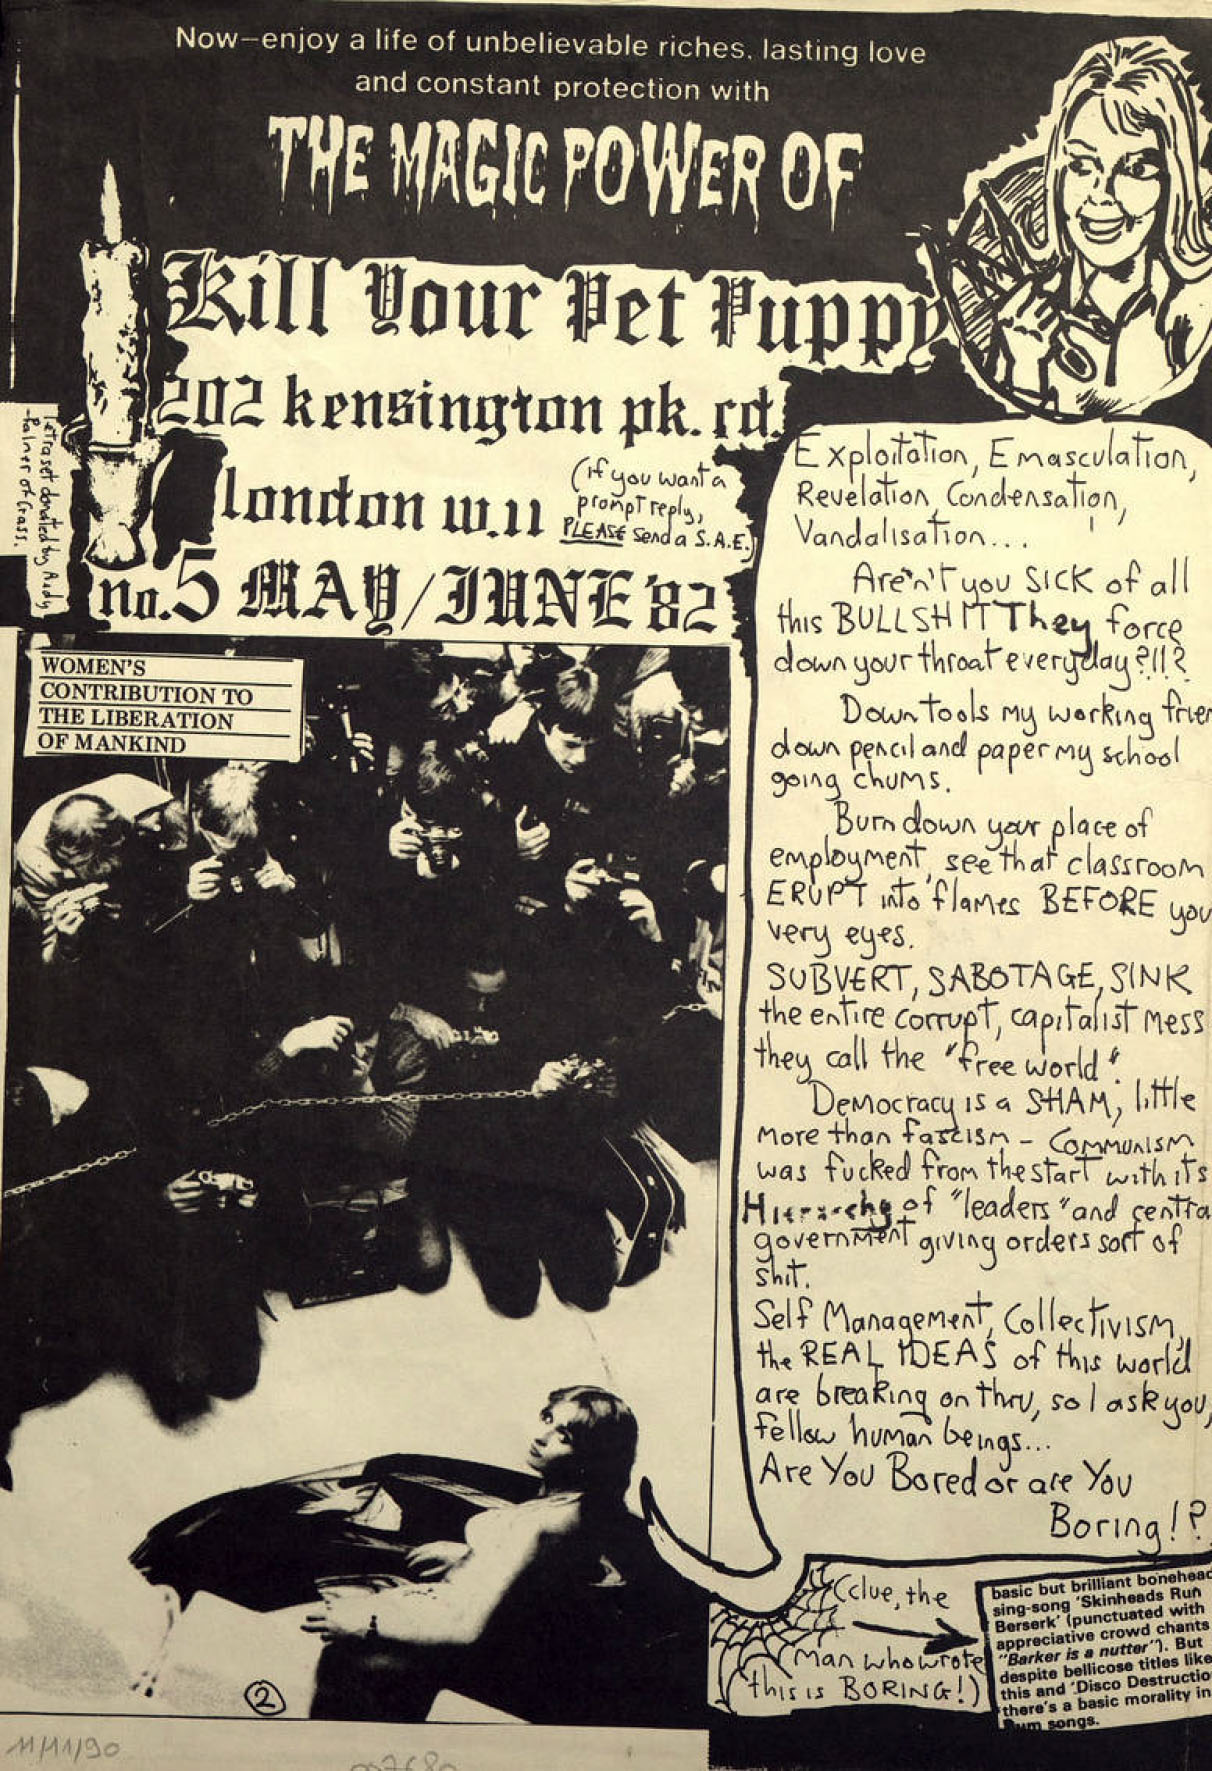 Now—enjoy a life of unbelievable riches, lasting love
and constant protection with
THE MAGIC POWER OF
Kill Your Pet Puppy
202 kensington pk. rd.
london w.11
(if you want a
prompt reply,
PLEASE send a S.A.E.)
no.5 MAY/JUNE '82
Letraset donated by Andy
Palmer of Crass.
WOMEN'S
CONTRIBUTION TO
THE LIBERATION
OF MANKIND
Exploitation, Emasculation,
Revelation, Condensation,
Vandalisation...
Aren't you SICK of all
this BULLSHIT They force
down your throat everyday?!!?
Down tools my working frien
down pencil and paper my school
going chums.
Burn down your place of
employment, see that classroom
ERUPT into flames BEFORE you
very eyes.
SUBVERT, SABOTAGE, SINK
the entire corrupt, capitalist mess
they call the "free world".
Democracy is a SHAM, little
more than fascism - Communism
was fucked from the start with its
Hierarchy of "leaders" and centra
government giving orders sort of
shit.
Self Management, Collectivism,
the REAL IDEAS of this world
are breaking on thru, so I ask you,
fellow human beings...
Are You Bored or are You
Boring!?
(clue, the
man who wrote
this is BORING!)
basic but brilliant bonehead
sing-song 'Skinheads Run
Berserk' (punctuated with
appreciative crowd chants
"Barker is a nutter"). But
despite bellicose titles like
this and 'Disco Destructio
there's a basic morality in
songs.
2
11/11/90